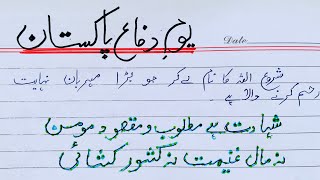 یومِ دفاع پاکستان
Date
شروع اللہ کا نام لے کر جو بڑا مہربان نہایت
رحم کرنے والا ہے۔
شہادت ہے مطلوب و مقصود مومن
نہ مال غنیمت نہ کشور کشائی